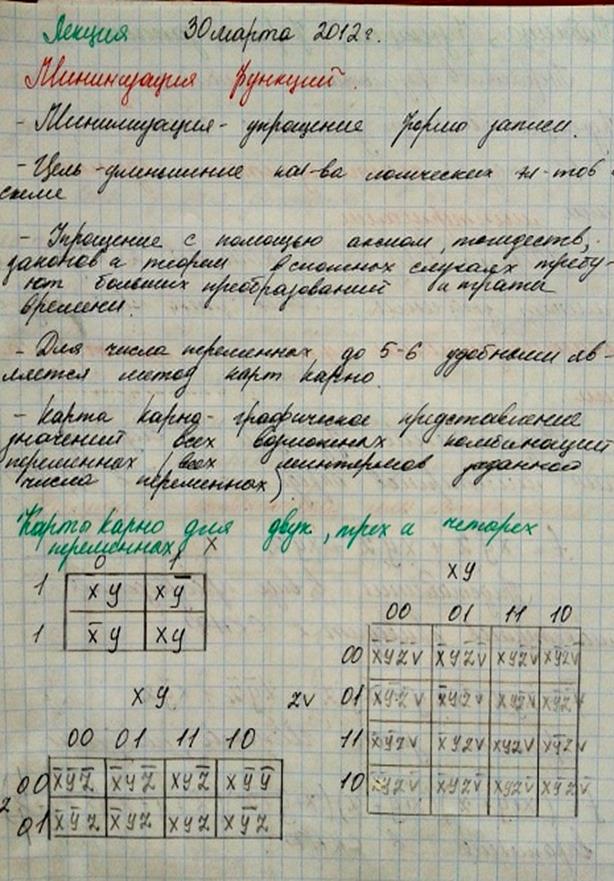 Лекция 30 марта 2012 г.
Минимизация функций.
- Минимизация - упрощение формы записи.
- Цель - уменьшение кол-ва логических эл-тов в
схеме
- Упрощение с помощью аксиом, тождеств,
законов и теорем в сложных случаях требу-
ют больших преобразований и траты
времени.
- Для числа переменных до 5-6 удобными яв-
ляется метод карт Карно.
- Карта Карно - графическое представление
значений всех возможных комбинаций
переменных (всех минтермов заданного
числа переменных)
Карты Карно для двух, трех и четырех
переменных
X
0 1
1 x y x y̅
1 x̅ y x y
X Y
00 01 11 10
00 x̅y̅z̅ x̅yz̅ xyz̅ xy̅y̅
01 x̅y̅z x̅yz xyz xy̅z
z
X Y
00 01 11 10
zv
00
01
11
10